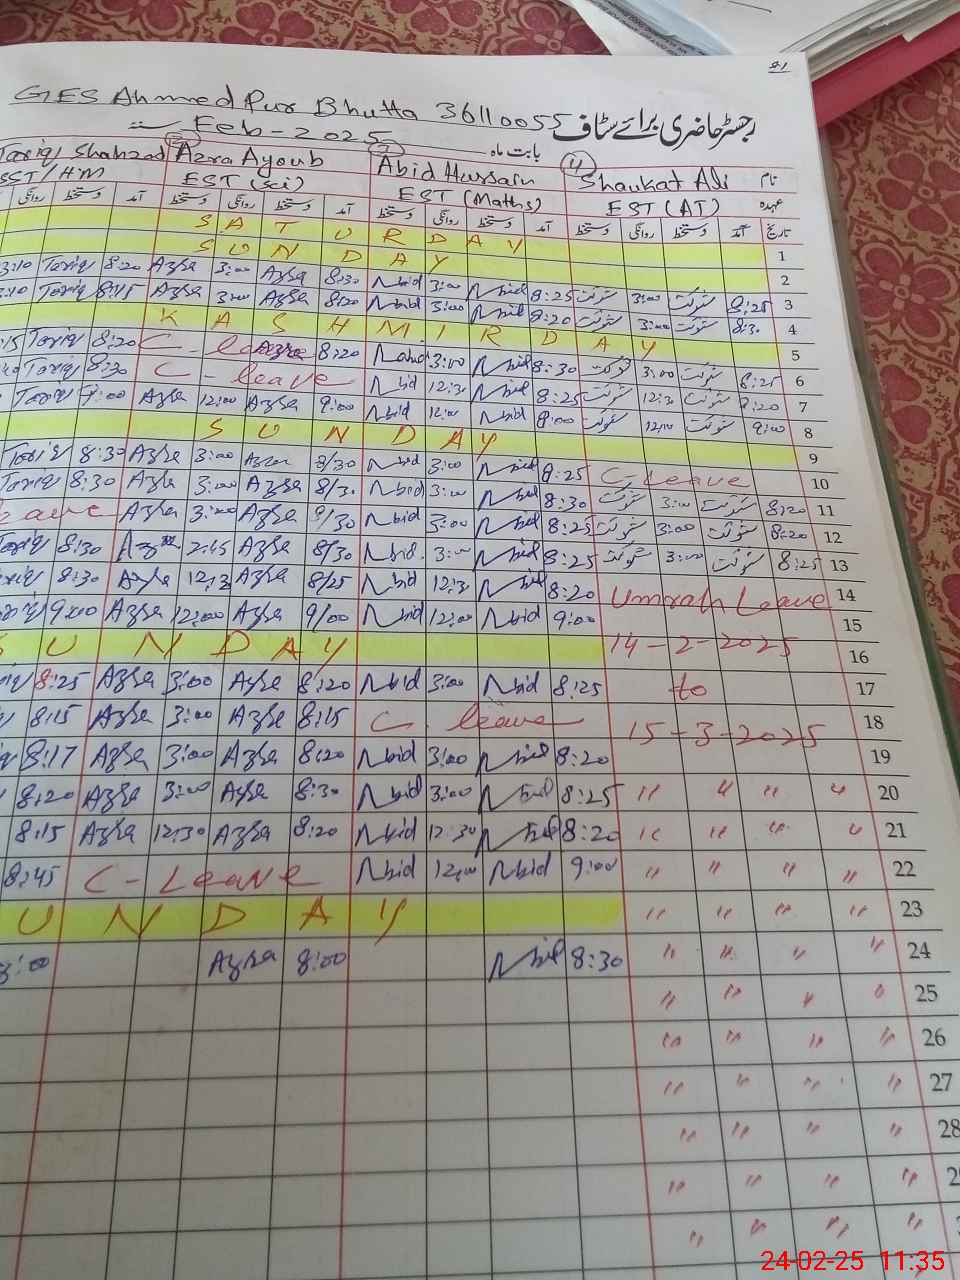 21
GES Ahmed Pur Bhutta 36110055
رجسٹر حاضری برائے سٹاف
Feb-2025 بابت ماہ
Tariq Shahzad Azra Ayoub Abid Hussain 4 Shaukat Ali نام
SST/HM EST (sci) EST (Maths) EST (AT) عہدہ
روانگی دستخط آمد دستخط روانگی دستخط آمد دستخط روانگی دستخط آمد دستخط روانگی دستخط آمد تاریخ
SATURDAY 1
SUNDAY 2
3:10 Tariq 8:20 Azra 3:00 Azra 8:30 Abid 3:00 Abid 8:25 شوکت 3:00 شوکت 8:25 3
Tariq 8:15 Azra 3:00 Azra 8:20 Abid 3:00 Abid 8:20 شوکت 3:00 شوکت 8:30 4
KASHMIR DAY 5
Tariq 8:20 C-leave 8:20 Abid 3:00 Abid 8:30 شوکت 3:00 شوکت 8:25 6
Tariq 8:30 C-leave Abid 12:30 Abid 8:25 شوکت 12:30 شوکت 8:20 7
Tariq 9:00 Azra 12:00 Azra 9:00 Abid 12:00 Abid 9:00 شوکت 12:00 شوکت 9:00 8
SUNDAY 9
Tariq 8:30 Azra 3:00 Azra 8/30 Abid 3:00 Abid 8:25 C-leave 10
Tariq 8:30 Azra 3:00 Azra 8/30 Abid 3:00 Abid 8:30 شوکت 3:00 شوکت 8:20 11
eave Azra 3:00 Azra 8/30 Abid 3:00 Abid 8:25 شوکت 3:00 شوکت 8:20 12
Tariq 8:30 Azra 2:45 Azra 8/30 Abid 3:00 Abid 8:25 شوکت 3:00 شوکت 8:25 13
8:30 Azra 12:30 Azra 8/25 Abid 12:30 Abid 8:20 Umrah Leave 14
9:00 Azra 12:00 Azra 9/00 Abid 12:00 Abid 9:00 15
SUNDAY 14-2-2025 16
8:25 Azra 3:00 Azra 8:20 Abid 3:00 Abid 8:25 to 17
8:15 Azra 3:00 Azra 8:15 C.leave 15-3-2025 18
8:17 Azra 3:00 Azra 8:20 Abid 3:00 Abid 8:20 19
8:20 Azra 3:00 Azra 8:30 Abid 3:00 Abid 8:25 " " " " 20
8:15 Azra 12:30 Azra 8:20 Abid 12:30 Abid 8:20 " " " " 21
8:45 C-Leave Abid 12:00 Abid 9:00 " " " " 22
UNDAY " " " " 23
Azra 8:00 Abid 8:30 " " " " 24
" " " " 25
" " " " 26
" " " " 27
" " " " 28
" " " " 2
" " " "
24-02-25 11:35